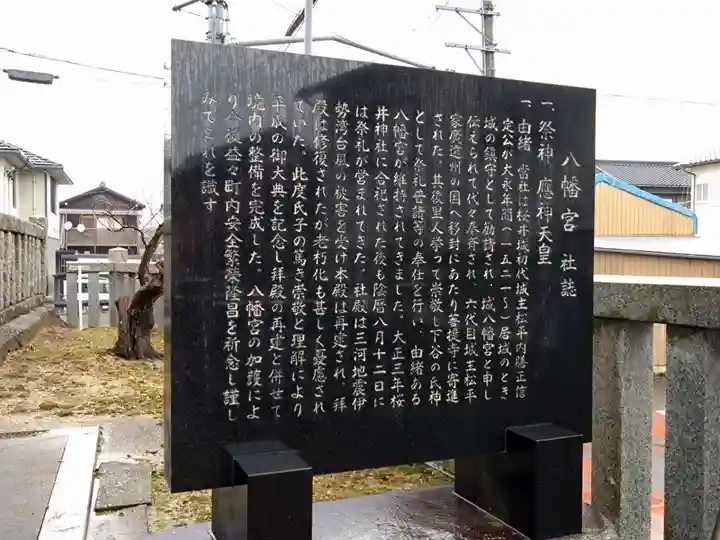 八幡宮 社誌
一、祭神 應神天皇
一、由緒 當社は桜井城初代城主松平内膳正信
定公が大永年間(一五二一〜)居城のとき
城の鎮守として勧請され、城八幡宮と申し
伝えられて代々奉斉され、六代目城主松平
家廣遠州の国へ移封にあたり菩提寺に寄進
された。其後里人挙って崇敬し下谷の氏神
として祭礼普請等の奉仕を行い、由緒ある
八幡宮が維持されてきました。大正三年桜
井神社に合祀された後も陰暦八月十二日に
は祭礼が営まれてきた。社殿は三河地震伊
勢湾台風の被害を受け本殿は再建され、拜
殿は修復されたが老朽化も甚しく憂慮され
ていた。此度氏子の篤き崇敬と理解により
平成の御大典を記念し拜殿の再建と併せて
境内の整備を完成した。八幡宮の加護によ
り今後益々町内安全繁榮隆昌を祈念し謹し
みてこれを識す